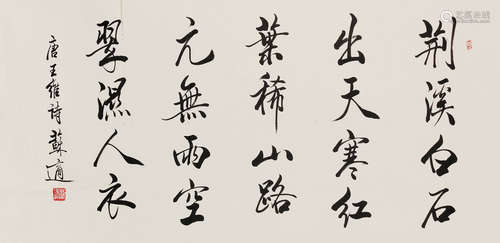 荆溪白石
出天寒红
葉稀山路
元無雨空
翠濕人衣
唐王維诗蘇適